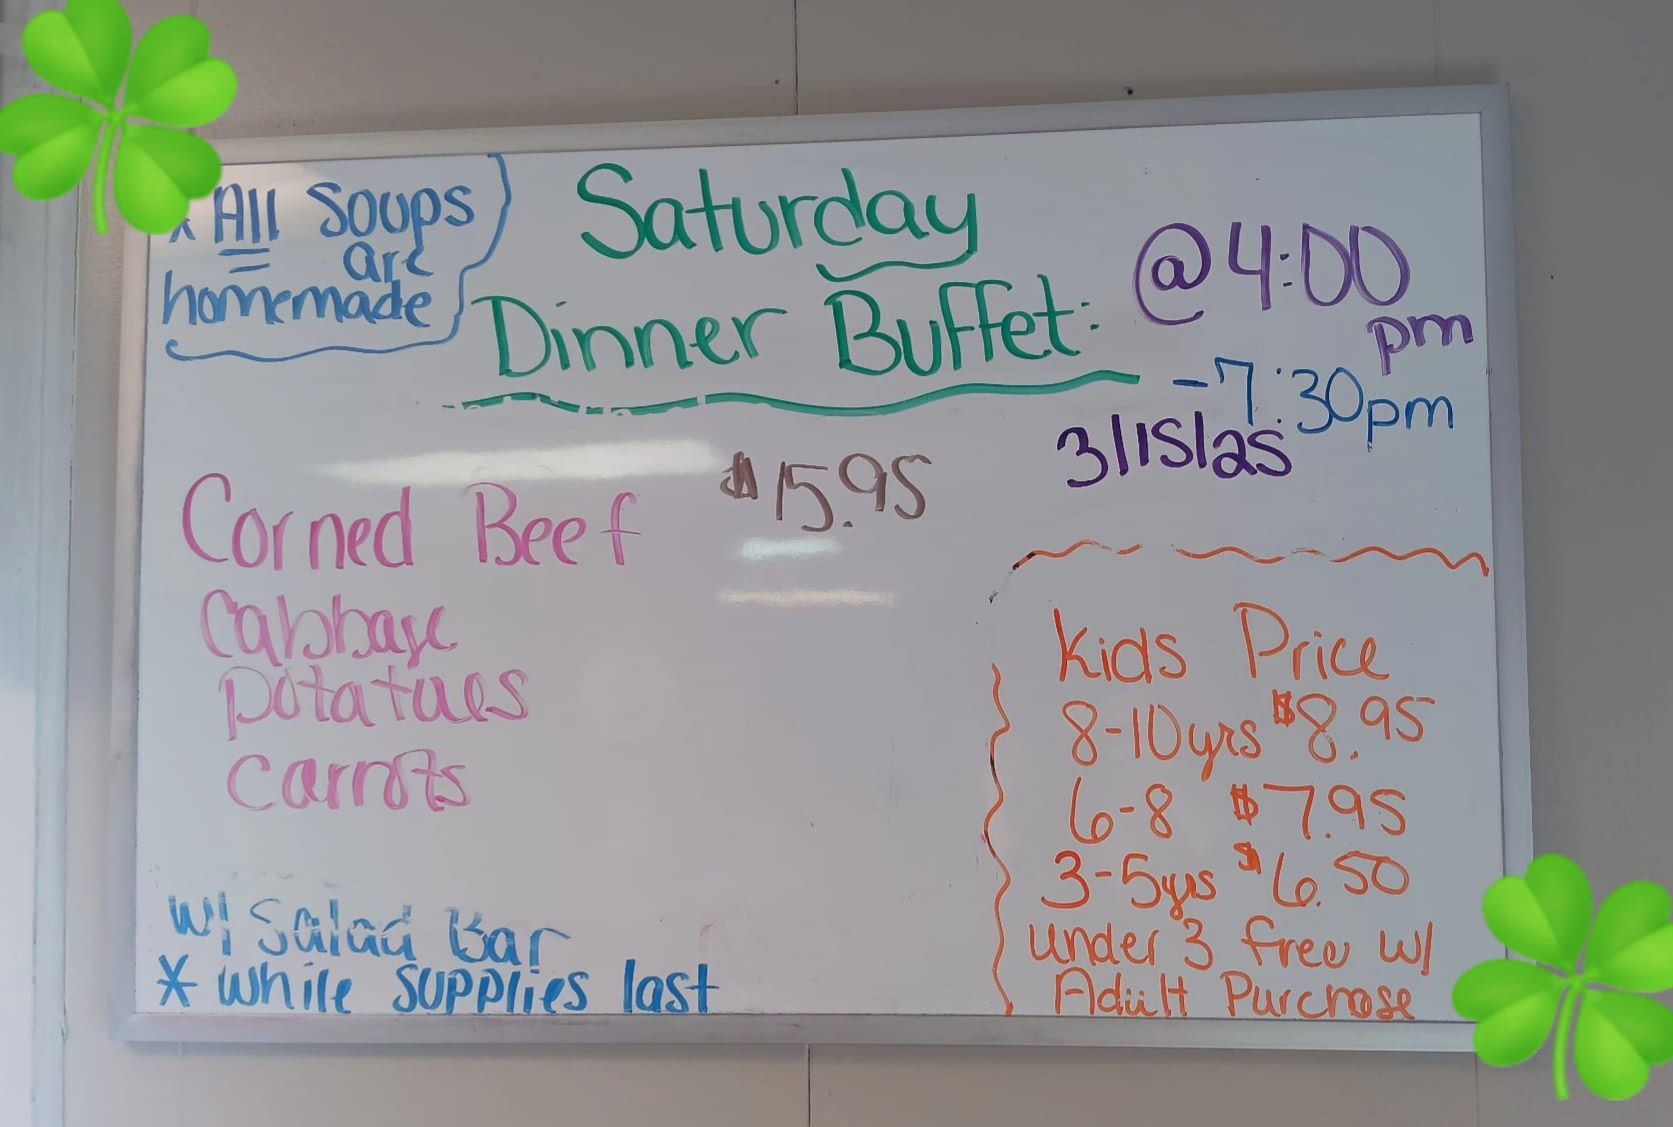 * All Soups
are
homemade
Saturday
Dinner Buffet:
@ 4:00
pm
-7:30pm
3/15/25
Corned Beef $15.95
Cabbage
potatoes
carrots
w/ Salad Bar
* while supplies last
Kids Price
8-10yrs $8.95
6-8 $7.95
3-5yrs $6.50
under 3 free w/
Adult Purchase